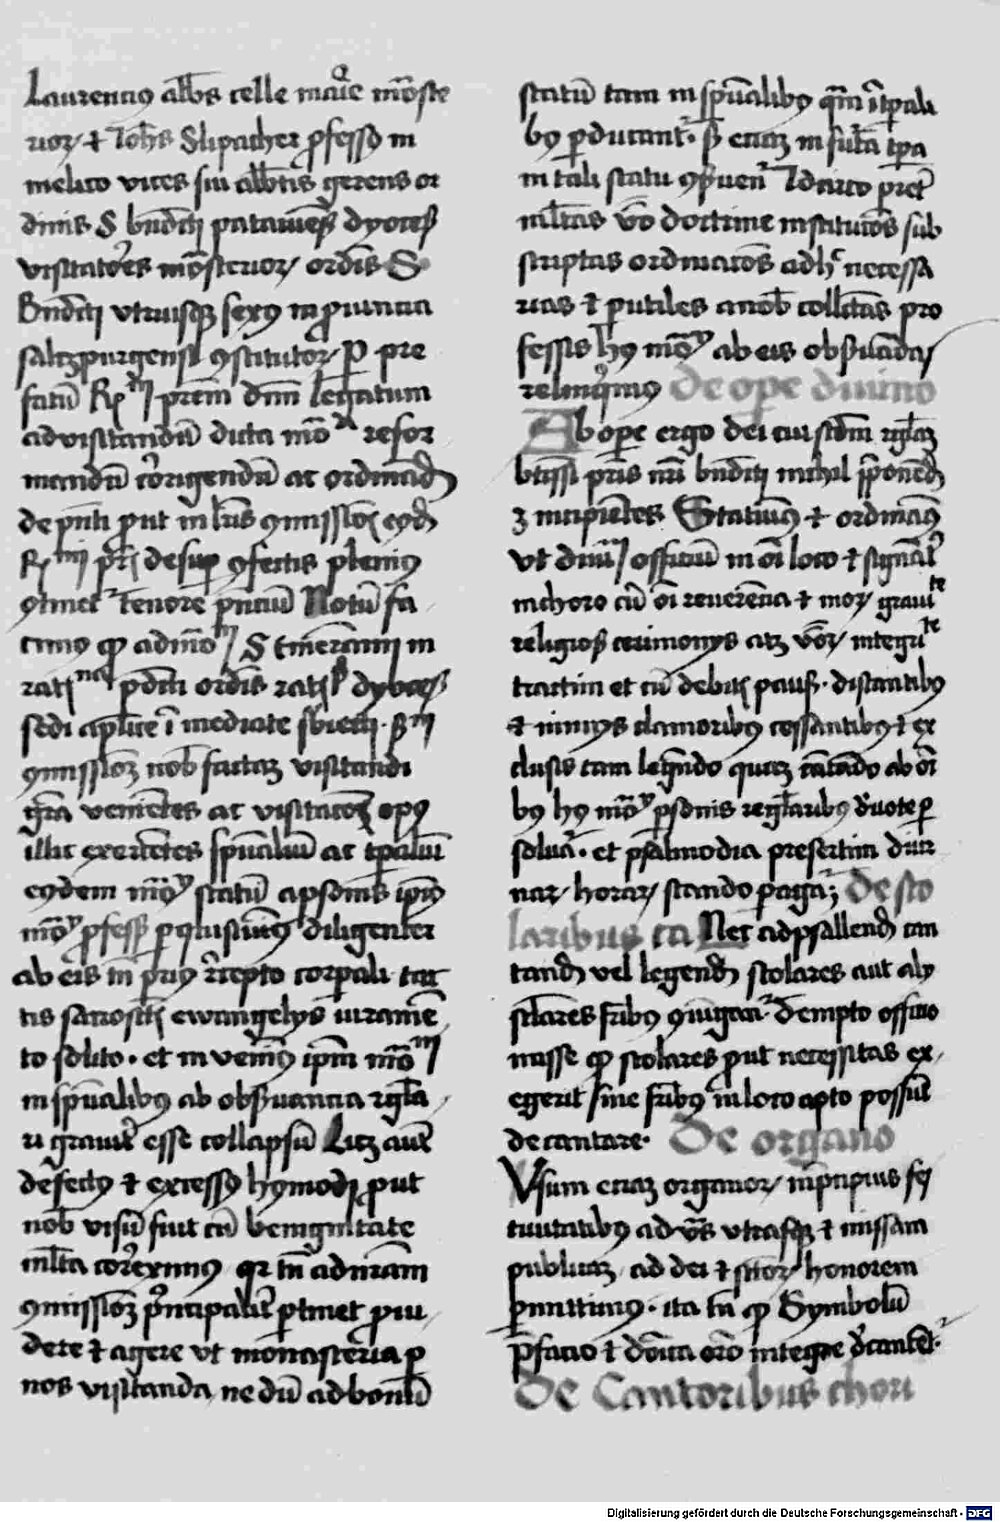 Laurencius abbas celle marie monaste
rior et Johes Slipacher professo in
melico vices sui abbatis gerens or
dinis S bndicti patauiens dyoces
visitatores monasterior ordis S
Bndicti vtriusque sexus in prouincia
saltzpurgensi constitutor Per pre
fatum R prem dnm legatum
ad visitandum dicta mon refor
mandum corrigendum ac ordinand
de pnti prout in lris commission eod
R pris desup confectis plenius
continet tenore pncium Notum fa
cimus quod ad mon S emerammi in
pdicti ordis rat dyoces
sedi aplice immediate sbiecti
commissionem nob factam visitandi
gra venientes ac visitacois opus
illic exercentes spualium ac tpalium
eiusdem mon statum a psonis ipius
mon profess diligenter
ab eis in prius recepto corpali tac
tis sacrosctis ewangelys iuramen
to solito. et invenimus ipm mon
in spualibus ab obseruancia regula
ri grauiter esse collapsum Licet autem
defectus et excessus hymodi prout
nob visum fuit cum benignitate
multa correximus quia tn ad nram
commissionem principaliter ptinet proui
dere et agere vt monasteria per
nos visitanda nedum ad bonum
statum tam in spualibus quam in tpali
bus perducant. sed eciam in futura tpa
in tali statu conseruen Idcirco preter
mltas vero doctrine institucois sub
scriptas ordinacoes ad hoc necessa
rias et putiles a nob collectas pro
fessis hus mon ab eis obseruandas
relinquimus De ope diuino
Ab ope ergo dei cui scdm reglam
btissi pris nri bndicti nichil preponend
incipientes Statuimus et ordinamus
vt diuinum officium in oi loco et signater
in choro cum oi reuerencia et mor grauite
religios cerimonys atque vbor integrite
tractim et cum debitis paus. distantibus
et nimys clamoribus cessantibus et ex
clusis tam legendo quam cantando ab oi
bus hus mon psonis regularibus deuote per
soluatur. et psalmodia presertim diur
nar horar stando pagatur De sco
laribus ca Nec ad psallend can
tand vel legend scolares aut aly
sclares fribus coniungant dempto officio
misse quod scolares prout necessitas ex
egerit sine fribus in loco apto possunt
decantare. De organo
Vsum eciam organor in precipuis fes
tiuitatibus ad vesp vtrasque et missam
publicam ad dei et sctor honorem
permittimus. ita tn quod Symbolum
prefacio et donica oracio integre decantent.
De Cantoribus chori
Digitalisierung gefördert durch die Deutsche Forschungsgemeinschaft - DFG